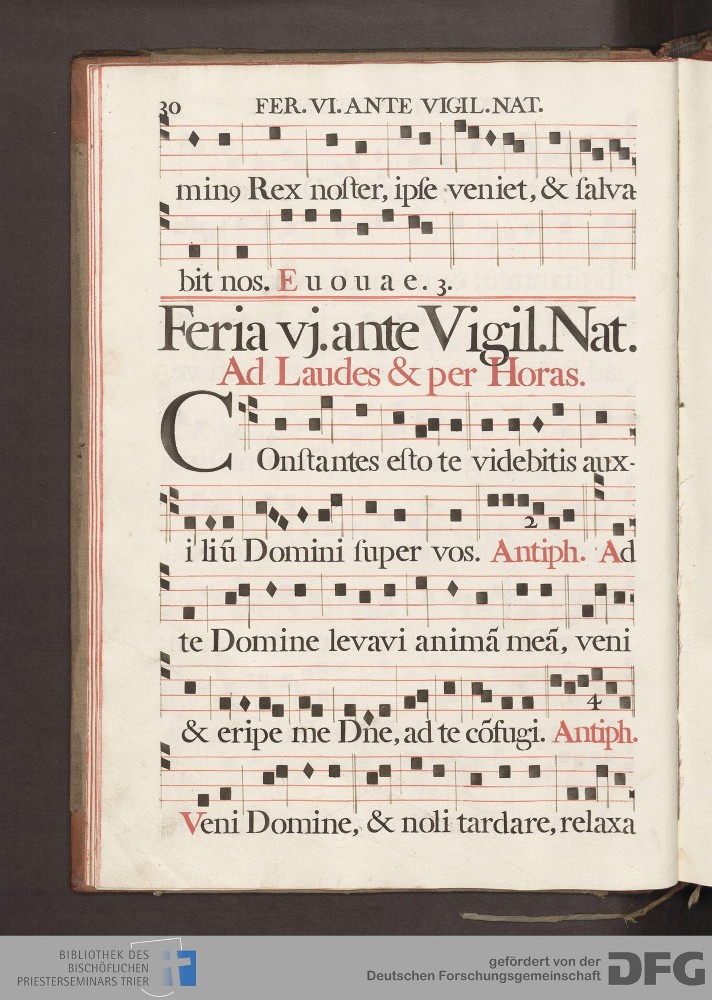 30 FER. VI. ANTE VIGIL. NAT.
min9 Rex noſter, ipſe veniet, & ſalva
bit nos. E u o u a e . 3.
Feria vj. ante Vigil. Nat.
Ad Laudes & per Horas.
COnſtantes eſto te videbitis aux-
2
i liũ Domini ſuper vos. Antiph. Ad
te Domine levavi animã meã, veni
4
& eripe me Dñe, ad te cõfugi. Antiph.
Veni Domine, & noli tardare, relaxa
BIBLIOTHEK DES
BISCHÖFLICHEN
PRIESTERSEMINARS TRIER
gefördert von der
Deutschen Forschungsgemeinschaft
DFG